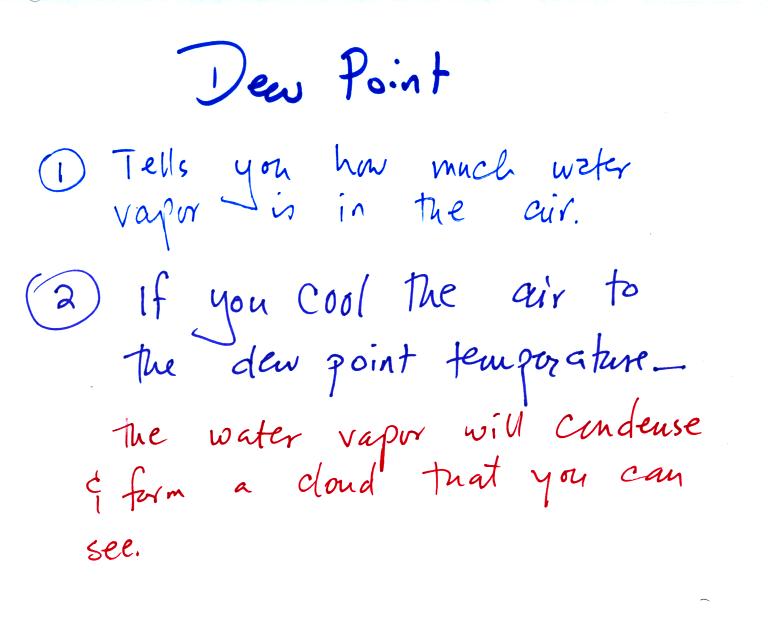 Dew Point
① Tells you how much water
vapor is in the air.
② If you cool the air to
the dew point temperature—
the water vapor will condense
& form a cloud that you can
see.